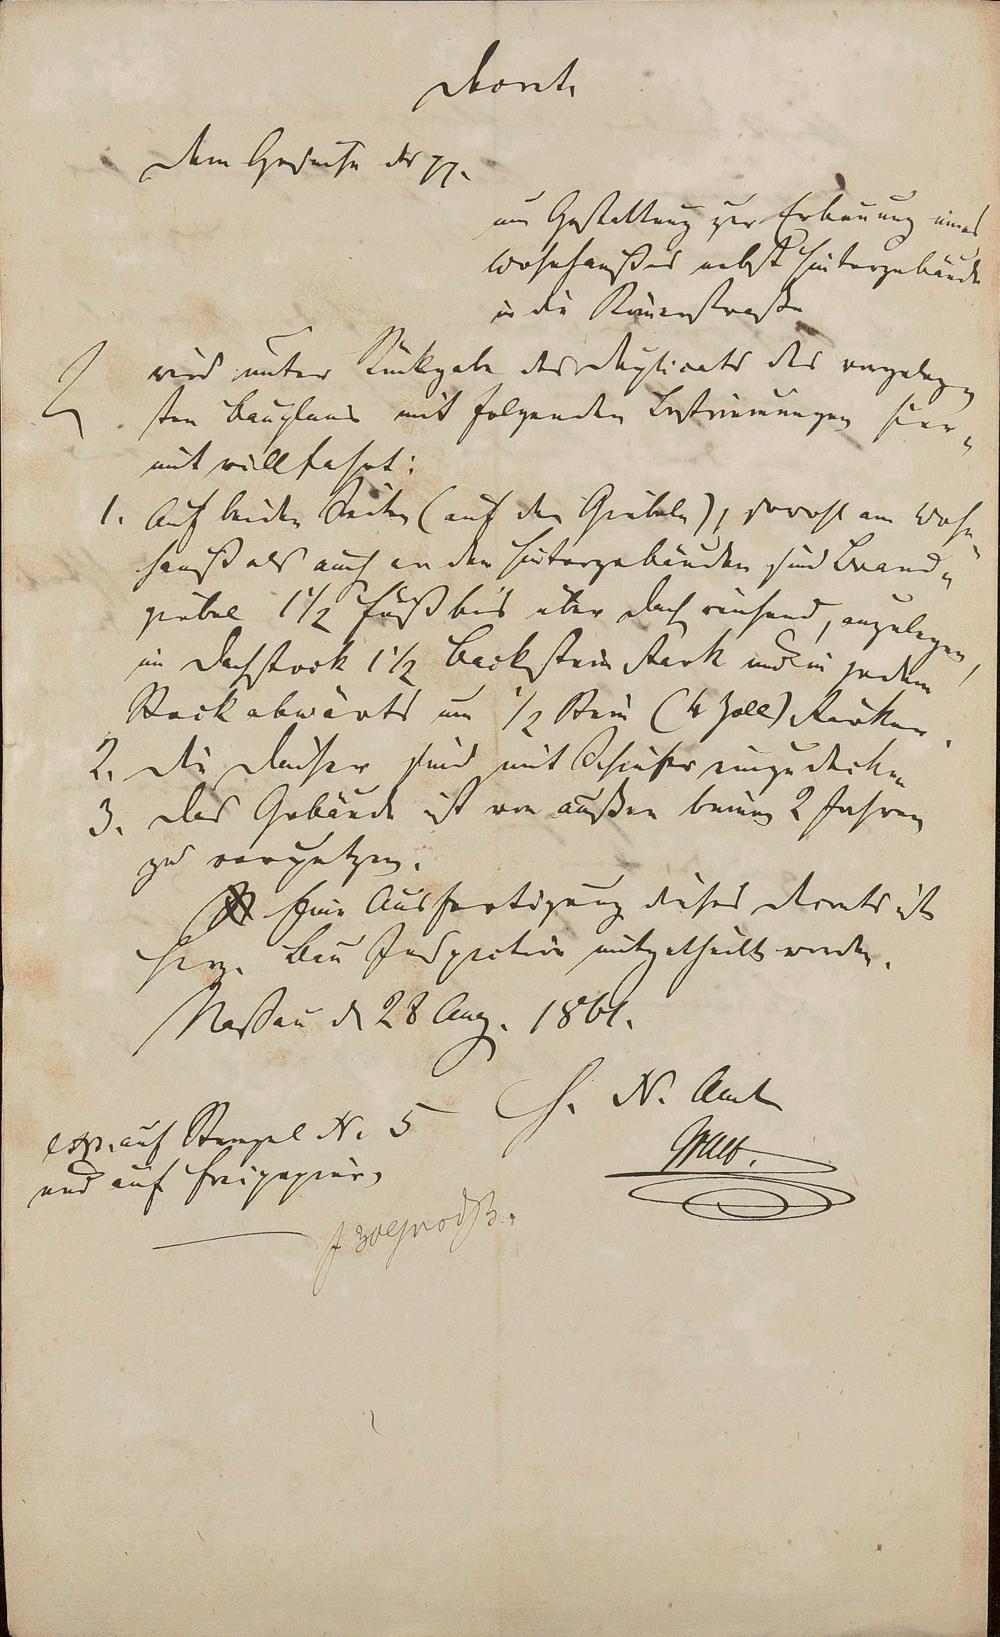 Decret.
Dem Gesuche des pp.
um Gestattung zur Erbauung eines
Wohnhaußes nebst Hintergebäude
in die Römerstraße
wird unter Rückgabe des Duplicats des vorgeleg-
ten Bauplans mit folgenden Bestimmungen hier-
mit willfahrt:
1. Auf beiden Seiten (auf den Giebeln), sowohl am Wohn-
hauß als auch an den Hintergebäuden sind Brand-
giebel 1 1/2 Fuß bis über Dach reichend, anzulegen,
im Dachstock 1 1/2 Backstein stark und in jedem
Stock abwärts um 1/2 Stein (4 Zoll) stärker.
2. Die Dächer sind mit Schiefer einzudecken
3. Das Gebäude ist von außen binnen 2 Jahren
zu verputzen.
Eine Ausfertigung dieses Decrets ist
Herz. Bau Inspection mitgetheilt worden.
Naßau d 28 Aug. 1861.
H. N. Amt
exp. auf Stempel N. 5
und auf Freipapier,